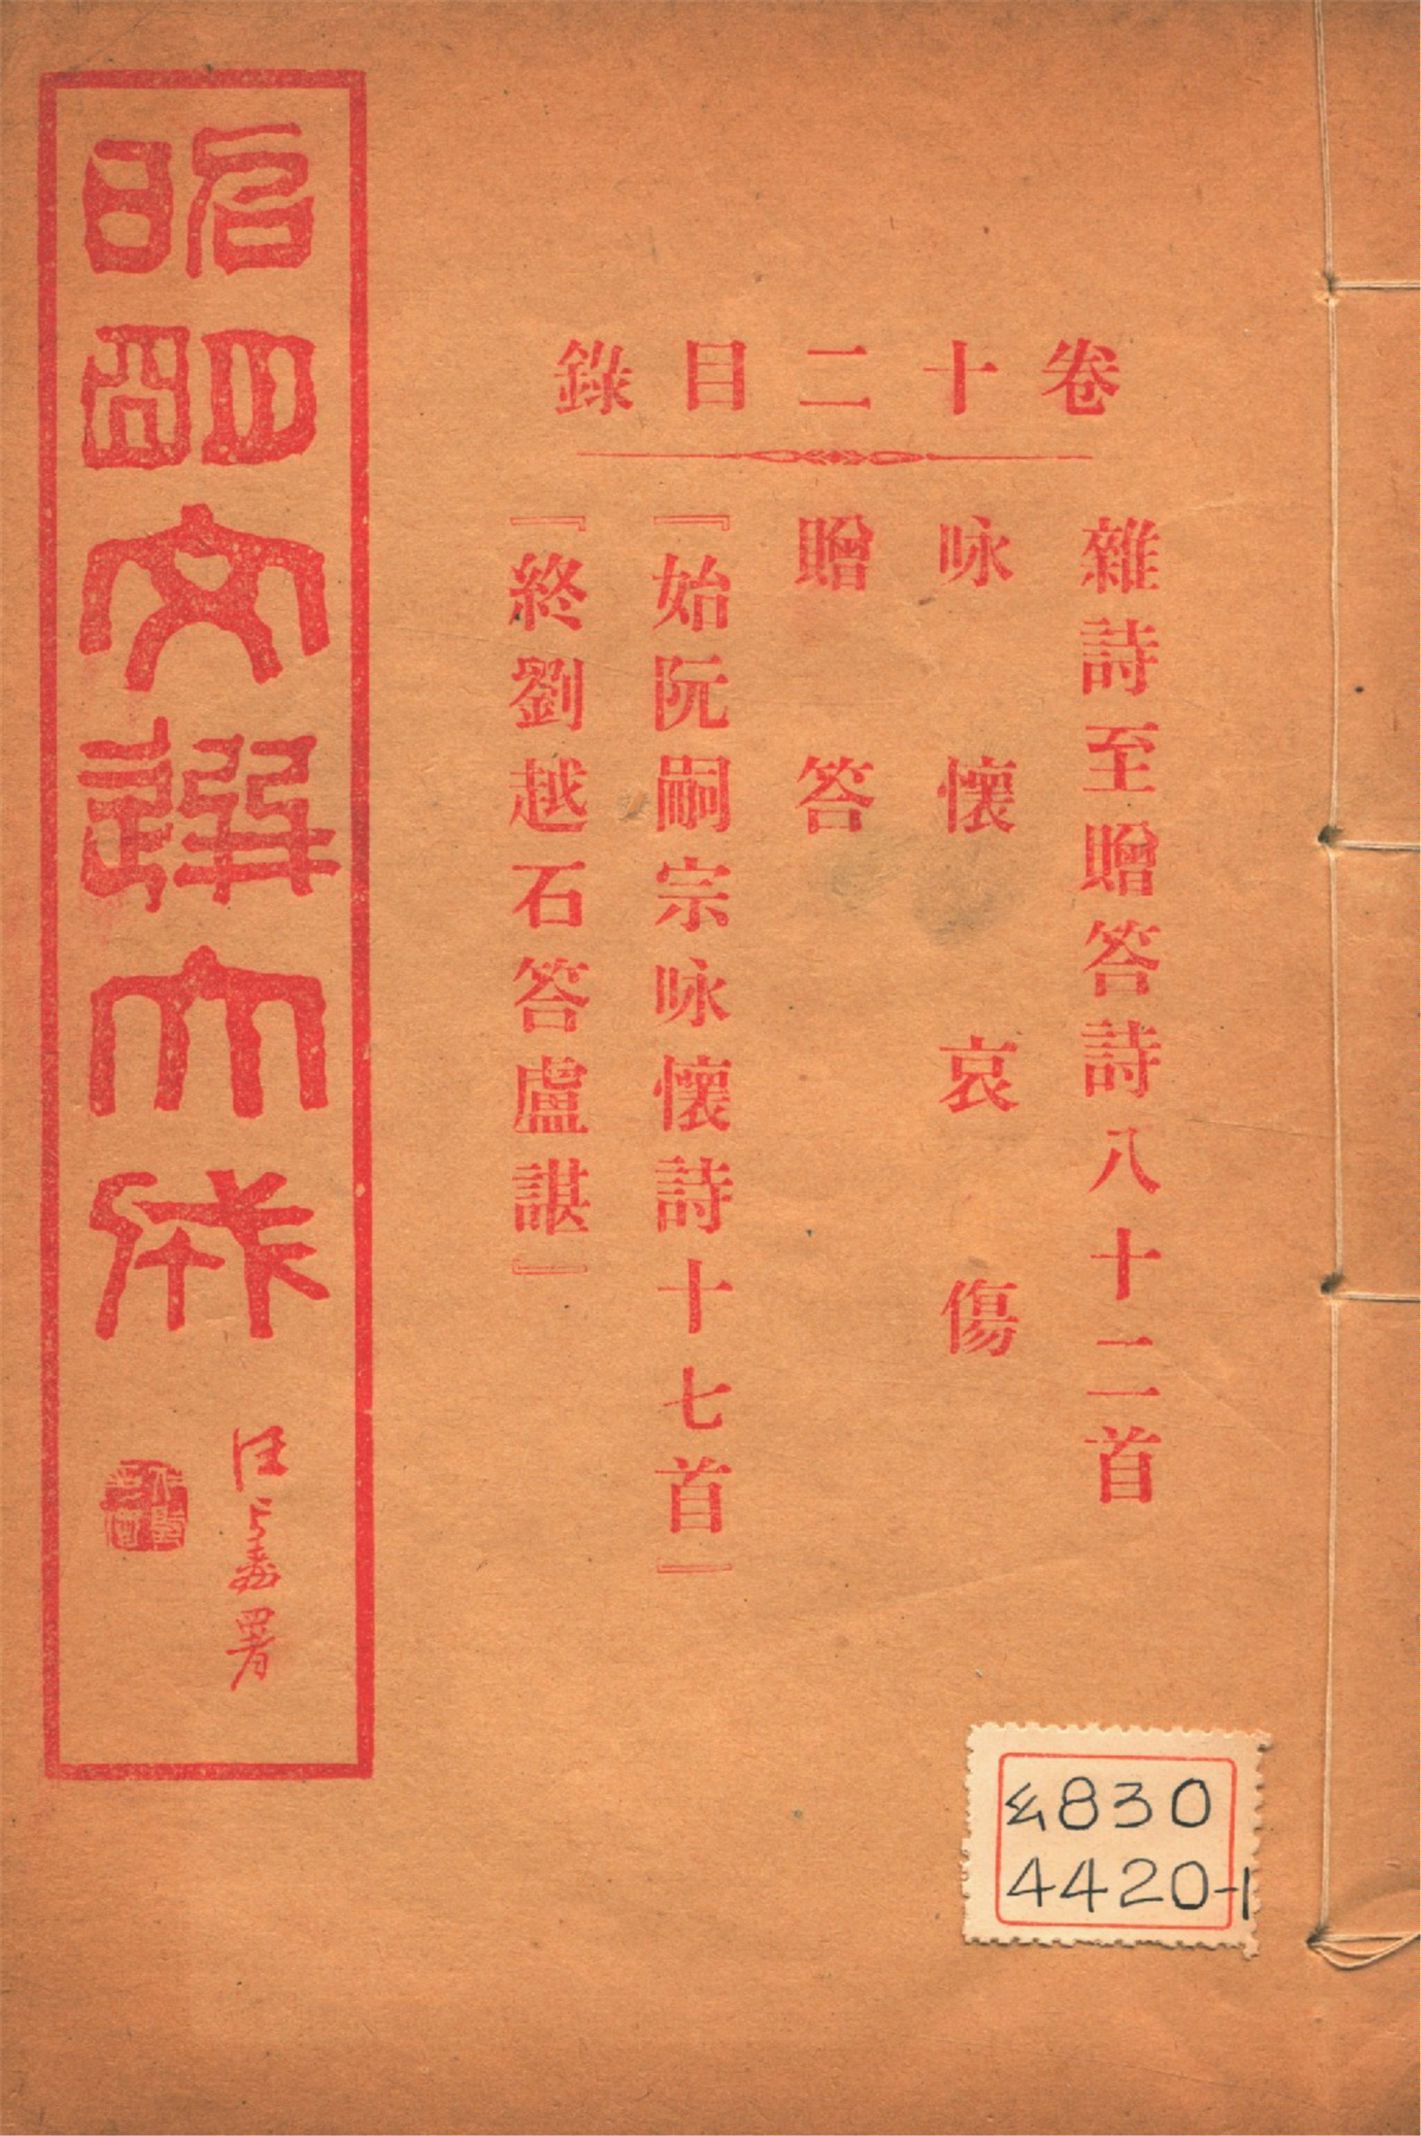 卷十二目錄
雜詩至贈答詩八十二首
咏懷 哀傷
贈答
『始阮嗣宗咏懷詩十七首』
『終劉越石答盧諶』
昭明文選大成
汪署
纟830
4420-1